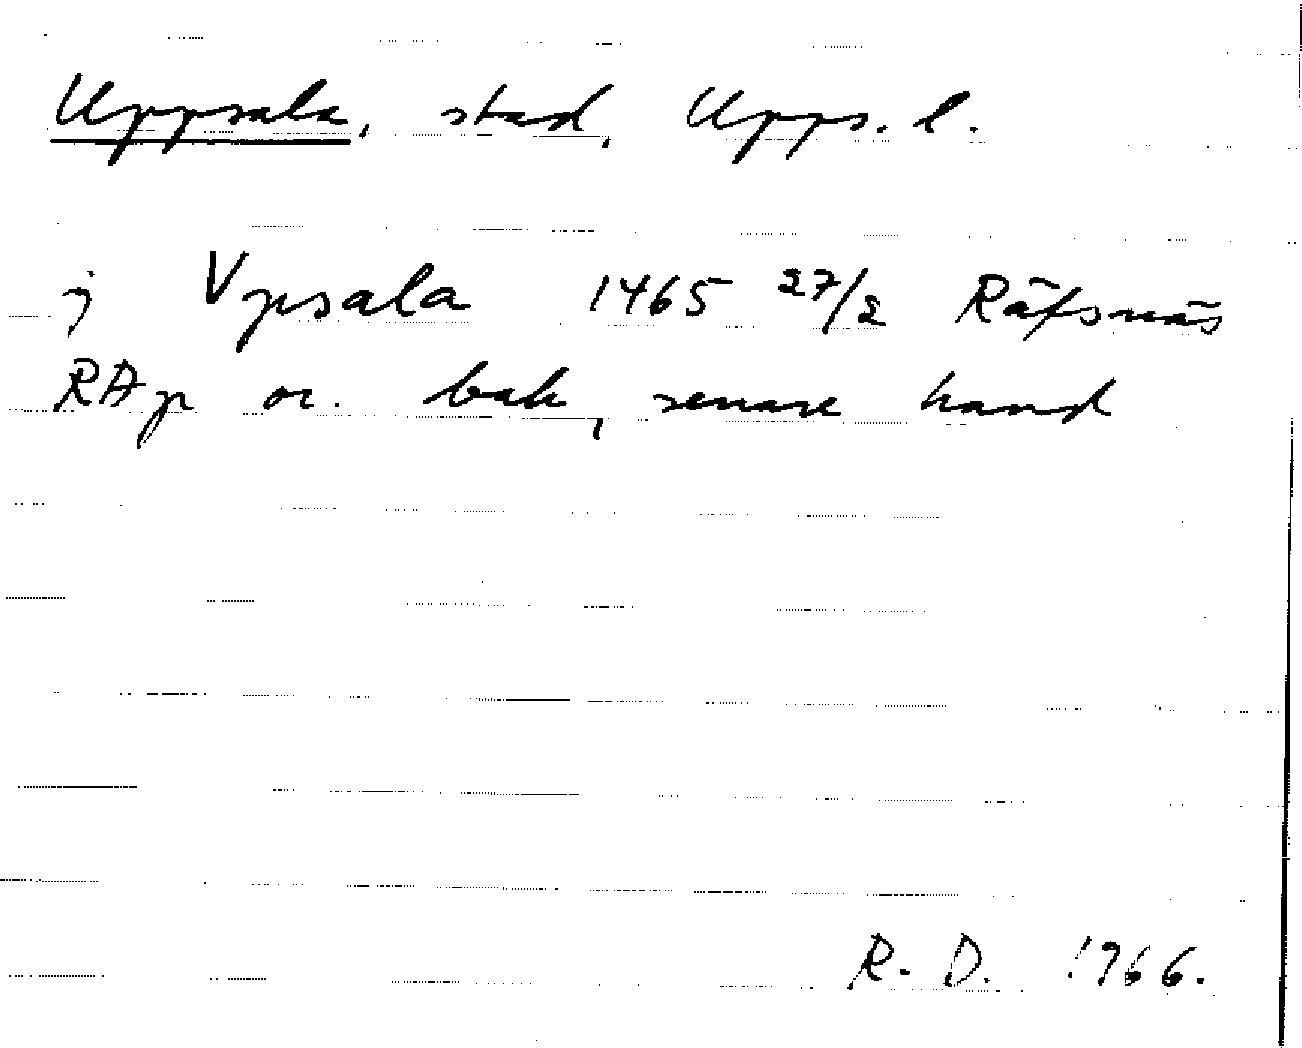 Uppsala, stad, Upps. l.
j Vpsala 1465 27/2 Räfsnäs
RAp or. bak, senare hand
R. D. 1966.